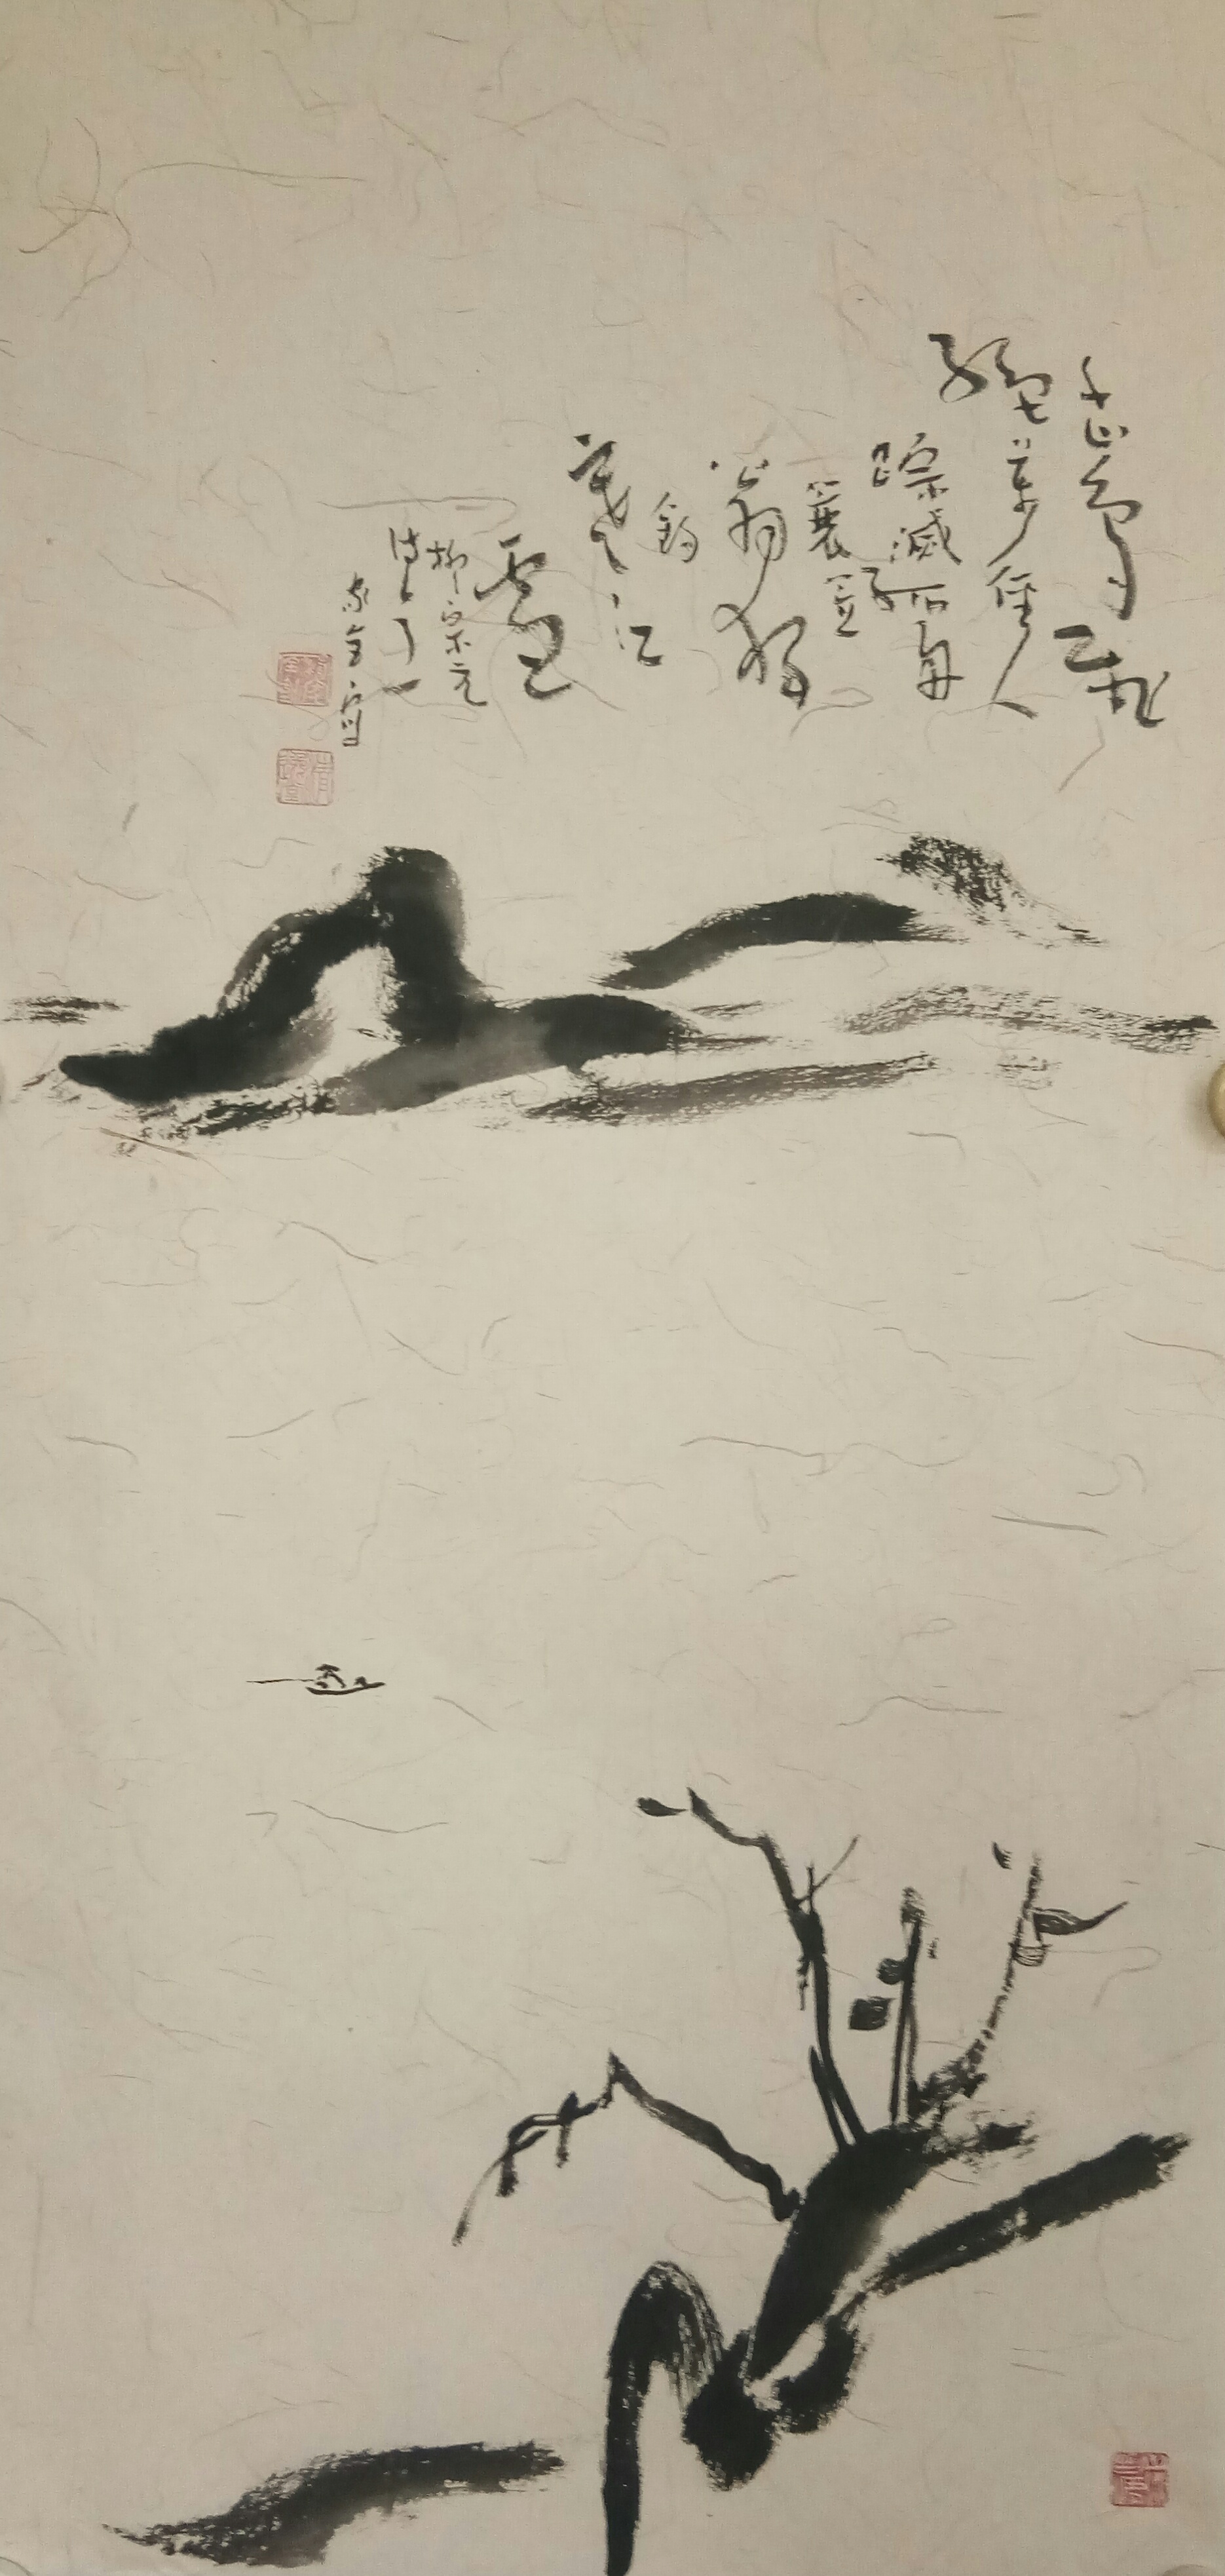 千山鳥飛
絕萬徑人
踪滅孤舟
蓑笠
翁獨
釣
寒江
雪
柳宗元
詩